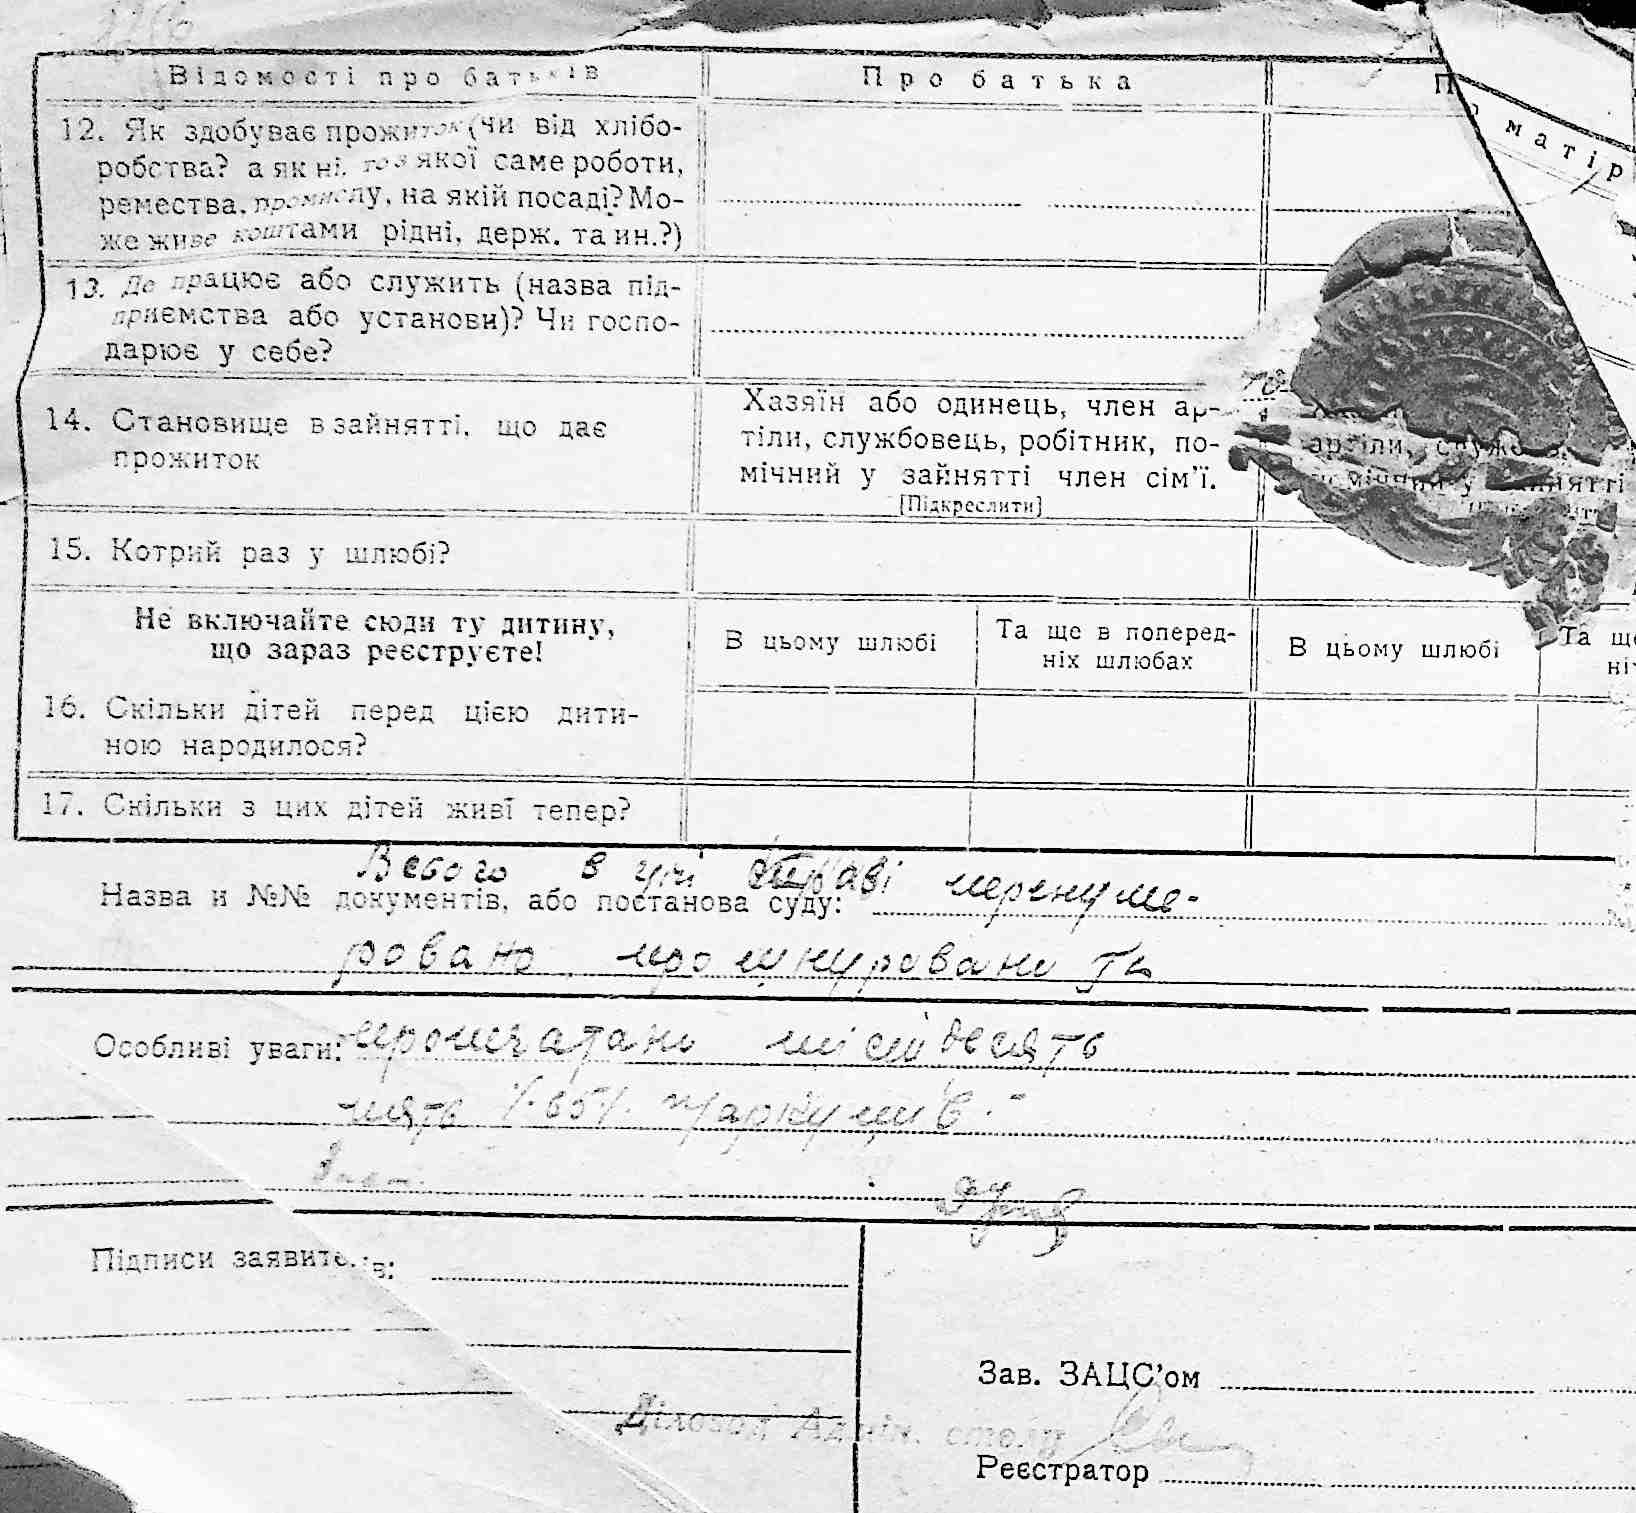 Відомості про батьків
Про батька
Про матір
12. Як здобуває прожиток (чи від хлібо-
робства? а як ні, то з якої саме роботи,
ремества, промислу, на якій посаді? Мо-
же живе коштами рідні, держ. та ин.?)
13. Де працює або служить (назва під-
приємства або установи)? Чи госпо-
дарює у себе?
14. Становище в зайнятті, що дає
прожиток
Хазяїн або одинець, член ар-
тіли, службовець, робітник, по-
мічний у зайнятті член сім'ї.
[Підкреслити]
артіли, службов
мічний у зайнятті
15. Котрий раз у шлюбі?
Не включайте сюди ту дитину,
що зараз реєструєте!
В цьому шлюбі
Та ще в поперед-
ніх шлюбах
В цьому шлюбі
Та ще
ніх
16. Скільки дітей перед цією дити-
ною народилося?
17. Скільки з цих дітей живі тепер?
Всього в цій справі перенуме-
Назва и №№ документів, або постанова суду:
ровано, прошнуровано та
Особливі уваги: пропечатано шісьдесять
пять /65/. Аркушів.-
Підписи заявите в:
Зав. ЗАЦС'ом
Діловод Адмін. столу
Реєстратор